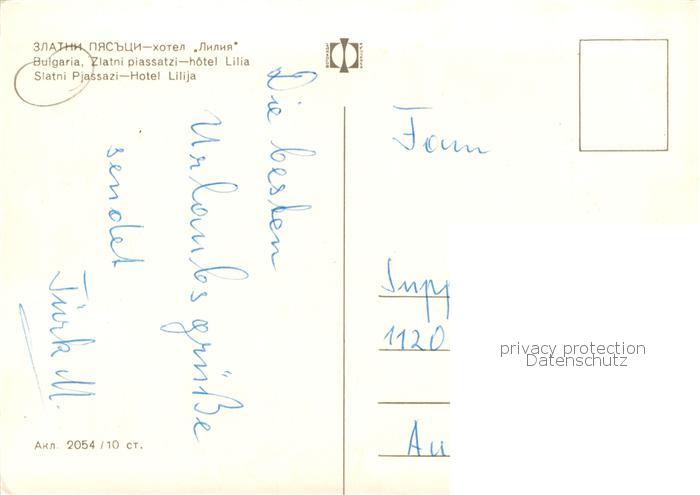 ЗЛАТНИ ПЯСЪЦИ—хотел „Лилия"
Bulgaria, Zlatni piassatzi—hôtel Lilia
Slatni Pjassazi—Hotel Lilija
Die besten
Urlaubsgrüße
sendet
Türk M.
Акл. 2054/10 ст.
Fam
Supp
1120
Au
privacy protection
Datenschutz